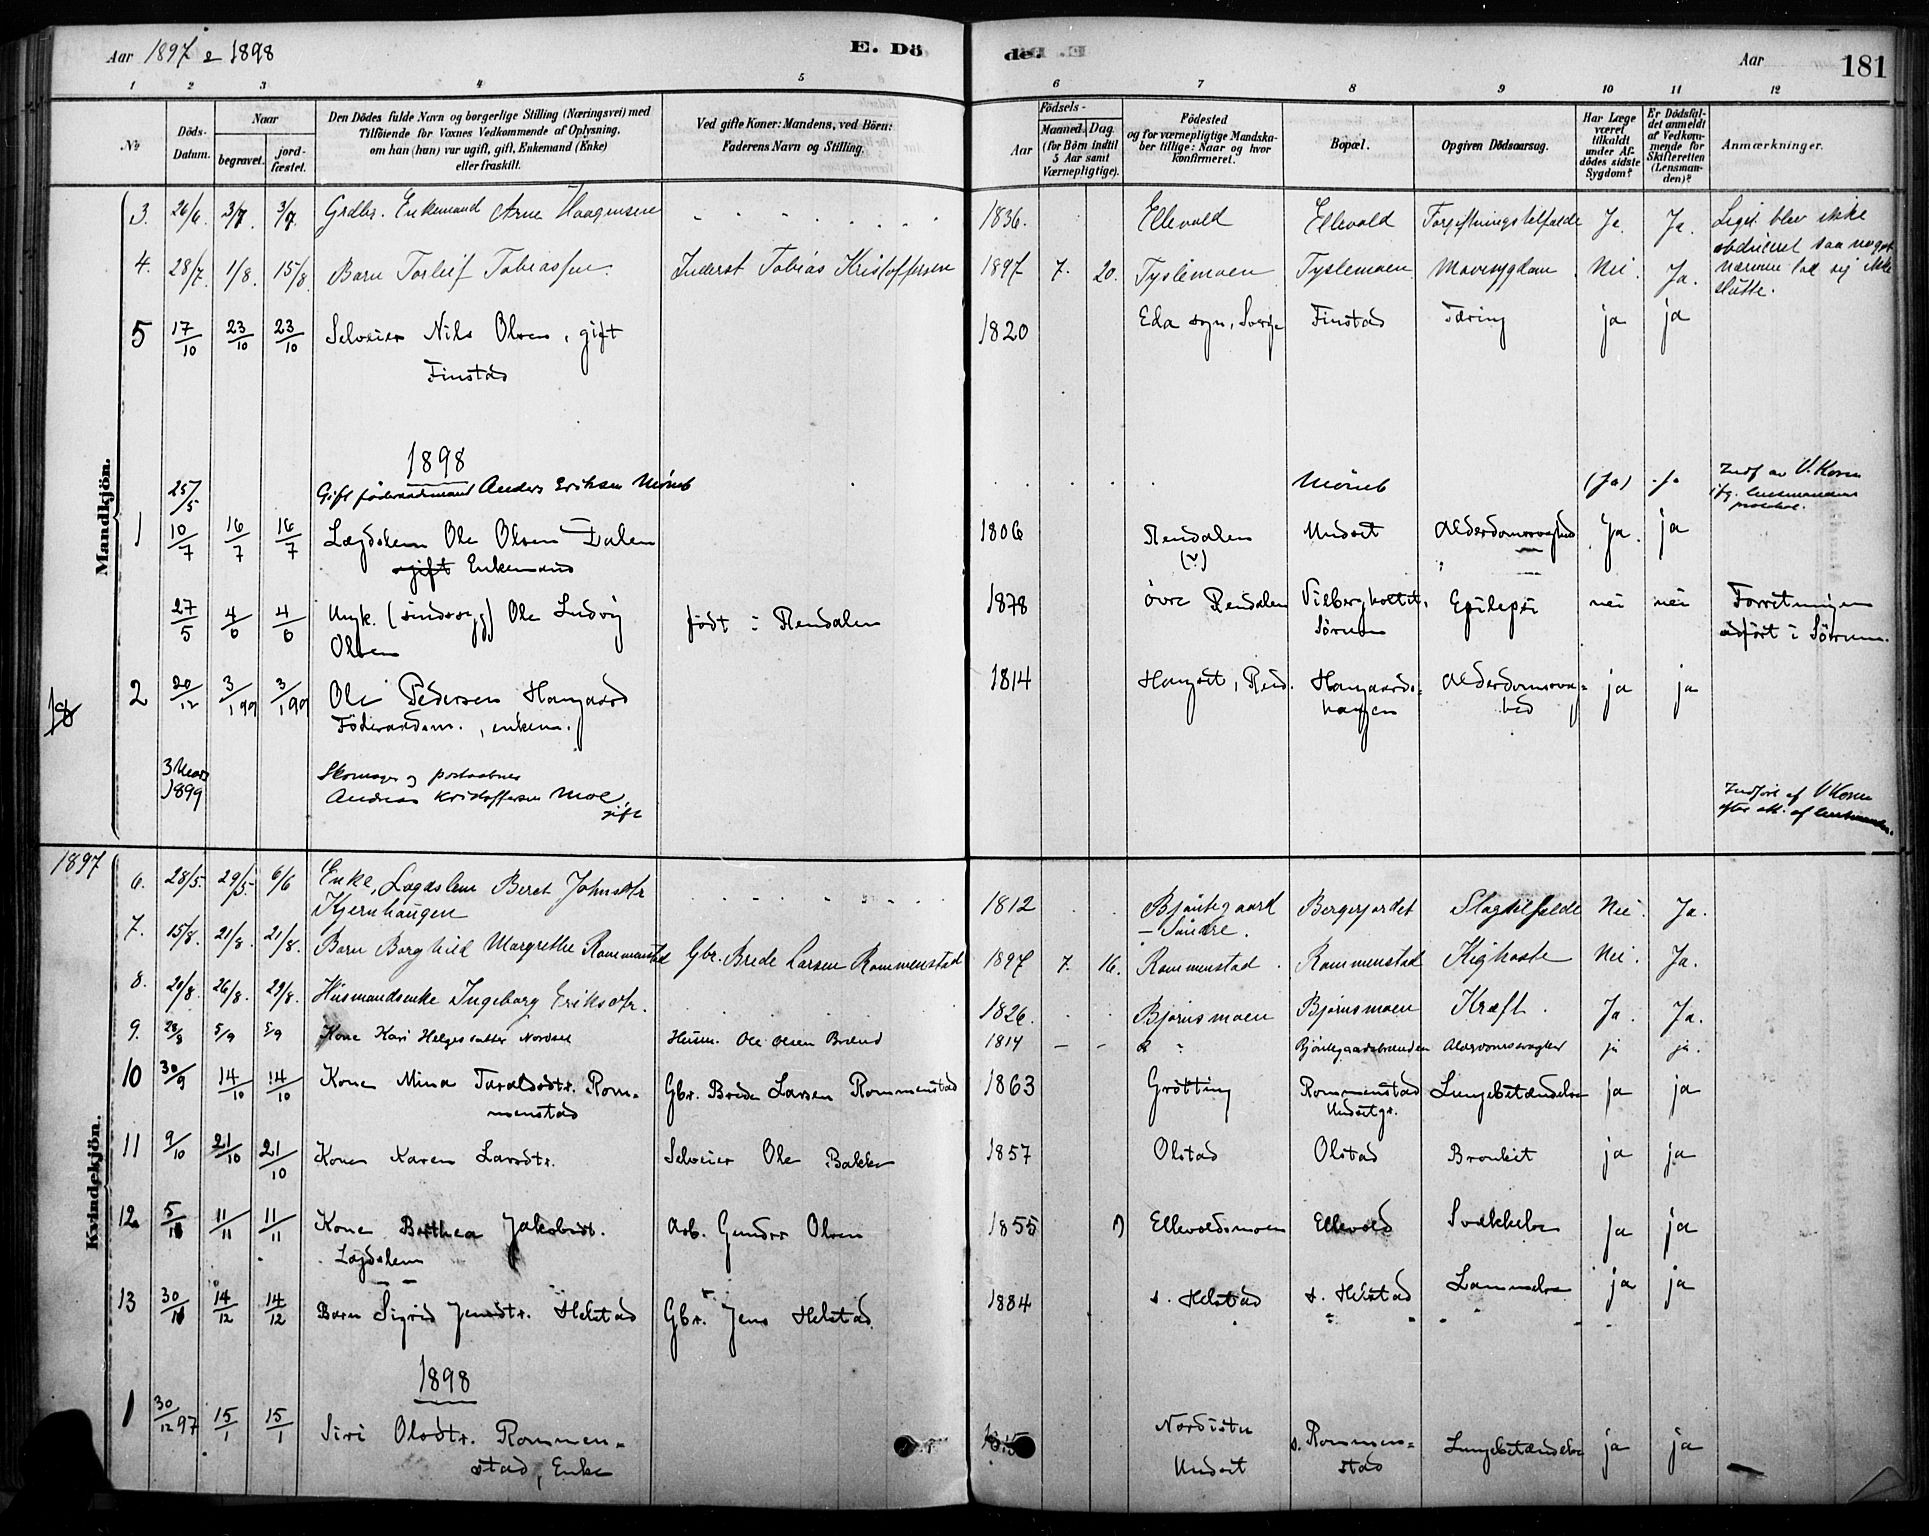 Aar 1897 & 1898 E. Dö de. Aar 181
1 2 3 4 5 6 7 8 9 10 11 12
No
Döds-Datum.
Naar
begravet.
jordfæstet.
Den Dödes fulde Navn og borgerlige Stilling (Næringsvei) med
Tilföiende for Voxnes Vedkommende af Oplysning,
om han (hun) var ugift, gift, Enkemand (Enke)
eller fraskilt.
Ved gifte Koner: Mandens, ved Börn:
Faderens Navn og Stilling.
Födsels-
Aar
Maaned. Dag
(for Börn indtil
5 Aar samt
Værnepligtige).
Födested
og for værnepligtige Mandska-
ber tillige: Naar og hvor
konfirmeret.
Bopæl.
Opgiven Dödsaarsag.
Har Læge
været
tilkaldt
under Af-
dödes sidste
Sygdom?
Er Dödsfal-
det anmeldt
af Vedkom-
mende for
Skifteretten
(Lensman-
den)?
Anmærkninger.
Mandkjön.
3. 26/6. 3/7. 3/7. Grdbr. Enkemand Arne Haagensen 1836. Ellevold Ellevold Forgiftningstilfælde Ja. Ja. Liget blev ikke
obduceret saa noget
nærmere lod sig ikke
slutte.
4. 28/7. 1/8. 15/8. Barn Torleif Tobiassen. Inderst Tobias Kristoffersen 1897 7. 20. Tyslemoen Tyslemoen Mavesygdom Nei. Ja.
5 17/10 23/10 23/10 Selveier Nils Olsen, gift 1820 Eda sogn, Sverige Finstad Tæring ja ja
Finstad
1898
25/5 Gift föderaadsmand Anders Eriksen Mömb Mömb (ja) ja Indf av V. Koren
ifg. lensmandens
protokol.
1 10/7 16/7 16/7 Lægdslem Ole Olsen Dalen 1806 Rendalen Undset Alderdomssvaghed Ja. ja
gift Enkemand (?)
27/5 4/6 4/6 Ungk. (sindssyg) Ole Ludvig født i Rendalen 1878 övre Rendalen Vilbergholtet, Epilepsi nei nei Forretningen
Olsen Sörum udfört i Sörum.
18
2 20/12 3/1 99 3/1 99 Ole Pedersen Hangaard 1814 Hangset, Rend. Hangaards- Alderdomssvag- ja ja
Föderaadsm., enkem. haugen hed
3 Mars Skomager og postaabner
1899 Andreas Kristoffersen Moe Indfört af V Koren
gift efter att. af lensmanden.
1897
Kvindekjön.
6. 28/5. 29/5. 6/6 Enke, Lægdslem Beret Johnsdtr. 1812 Bjöntegaard Bergerjordet Slagtilfælde Nei. Ja.
Kjernhaugen – Söndre.
7. 15/8. 21/8. 21/8. Barn Borghild Margrethe Rommenstad Gbr. Brede Larsen Rommenstad 1897 7. 16. Rommenstad Rommenstad Kighoste Nei. Ja.
8. 20/8. 26/8. 29/8. Husmandsenke Ingeborg Eriksdtr. 1826. Bjørnsmoen Bjørnsmoen Kræft. Ja. Ja.
9. 28/8 5/9 5/9 Kone Kari Helgesdatter Nordset Husm. Ole Olsen Brænd 1814 – – Bjöntegaardsbrænden Alderdomssvaghet ja ja.
10 30/9 14/10 14/10 Kone Mina Taraldsdtr. Rom- Gbr. Brede Larsen Rommenstad 1863 Grötting Rommenstad Lungebetændelse ja ja
menstad Undsetgr.
11 9/10 21/10 21/10 Kone Karen Larsdtr. Selveier Ole Bakken 1857 Olstad Olstad Bronkit ja ja
12 5/11 11/11 11/11 Kone Berthea Jakobsdt. Arb. Gunder Olsen 1855 ?) Ellevoldsmoen Ellevold Svækkelse ja ja
Lægdslem
13 30/11 14/12 14/12 Barn Sigrid Jensdtr. Helstad Gbr. Jens Helstad 1884 s. Helstad s. Helstad Lammelse ja ja
1898
1 30/12 97 15/1 15/1 Siri Olsdtr. Rommen- 1815 Nordistu s. Rommen- Lungebetændelse ja ja
stad, Enke Undset stad